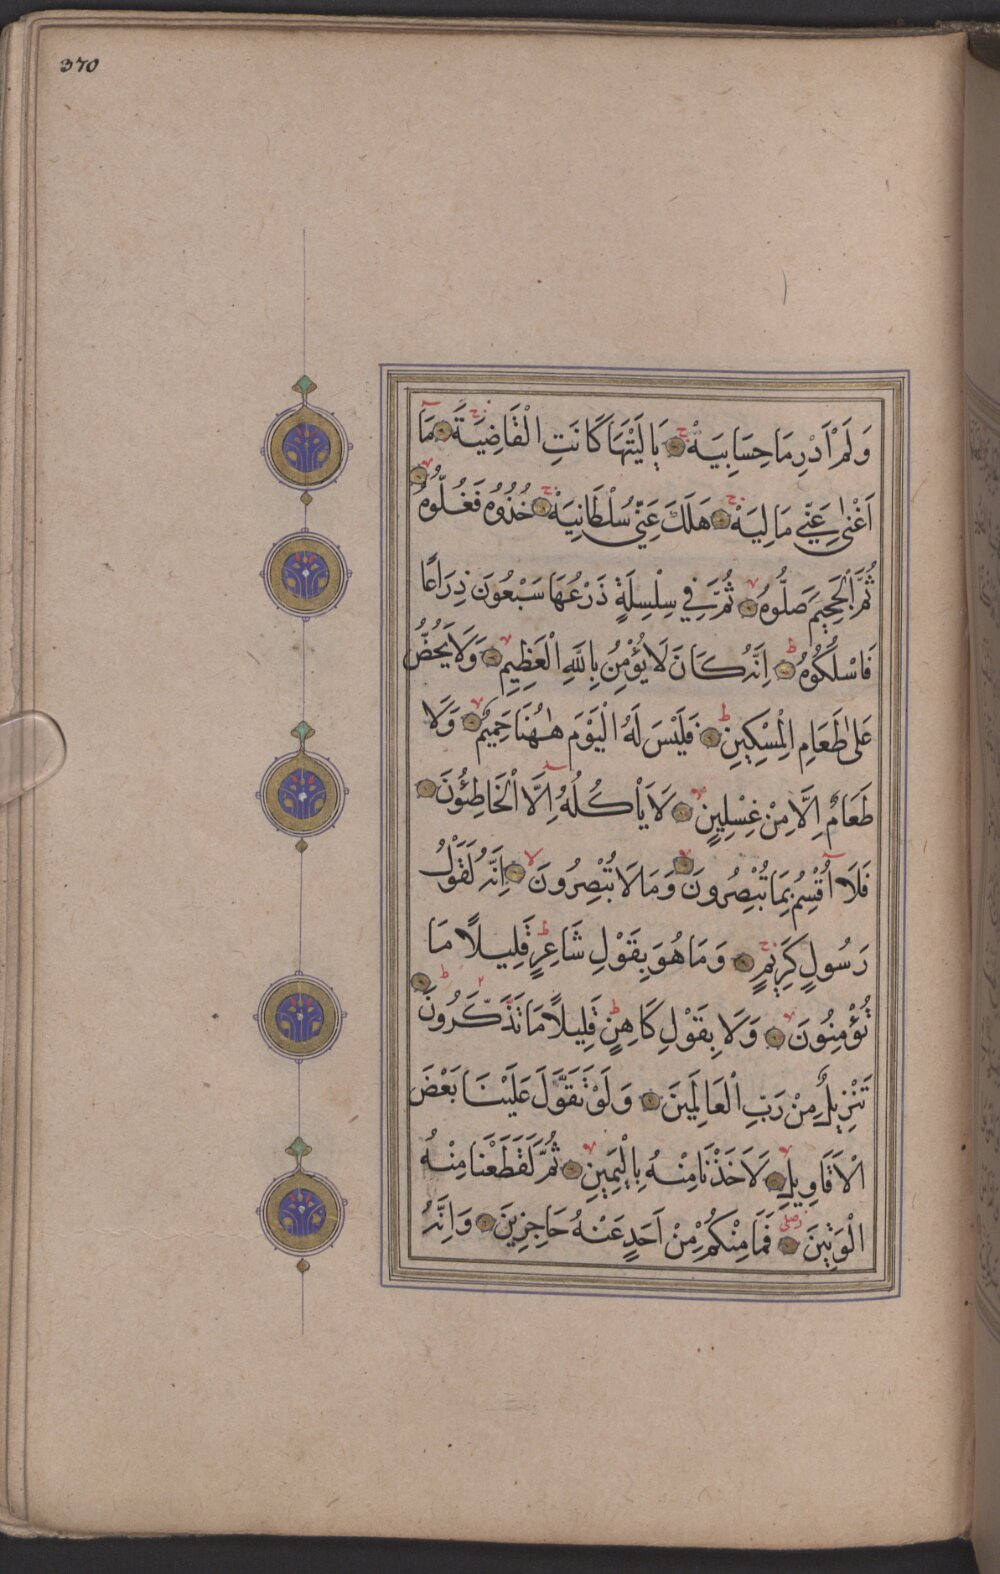 370
وَلَمْ اَدْرِ مَا حِسَابِيَهْ يَا لَيْتَهَا كَانَتِ الْقَاضِيَةَ مَا
اَغْنٰى عَنّٖي مَا لِيَهْ هَلَكَ عَنّٖي سُلْطَانِيَهْ خُذُوهُ فَغُلُّوهُ
ثُمَّ الْجَحِيمَ صَلُّوهُ ثُمَّ فِي سِلْسِلَةٍ ذَرْعُهَا سَبْعُونَ ذِرَاعًا
فَاسْلُكُوهُ اِنَّهُ كَانَ لَا يُؤْمِنُ بِاللّٰهِ الْعَظِيمِ وَلَا يَحُضُّ
عَلٰى طَعَامِ الْمِسْكِينِ فَلَيْسَ لَهُ الْيَوْمَ هٰهُنَا حَمِيمٌ وَلَا
طَعَامٌ اِلَّا مِنْ غِسْلِينٍ لَا يَاْكُلُهُ اِلَّا الْخَاطِئُونَ
فَلَا اُقْسِمُ بِمَا تُبْصِرُونَ وَمَا لَا تُبْصِرُونَ اِنَّهُ لَقَوْلُ
رَسُولٍ كَرِيمٍ وَمَا هُوَ بِقَوْلِ شَاعِرٍ قَلِيلًا مَا
تُؤْمِنُونَ وَلَا بِقَوْلِ كَاهِنٍ قَلِيلًا مَا تَذَكَّرُونَ
تَنْزِيلٌ مِنْ رَبِّ الْعَالَمِينَ وَلَوْ تَقَوَّلَ عَلَيْنَا بَعْضَ
الْاَقَاوِيلِ لَاَخَذْنَا مِنْهُ بِالْيَمِينِ ثُمَّ لَقَطَعْنَا مِنْهُ
الْوَتِينَ فَمَا مِنْكُمْ مِنْ اَحَدٍ عَنْهُ حَاجِزِينَ وَاِنَّهُ